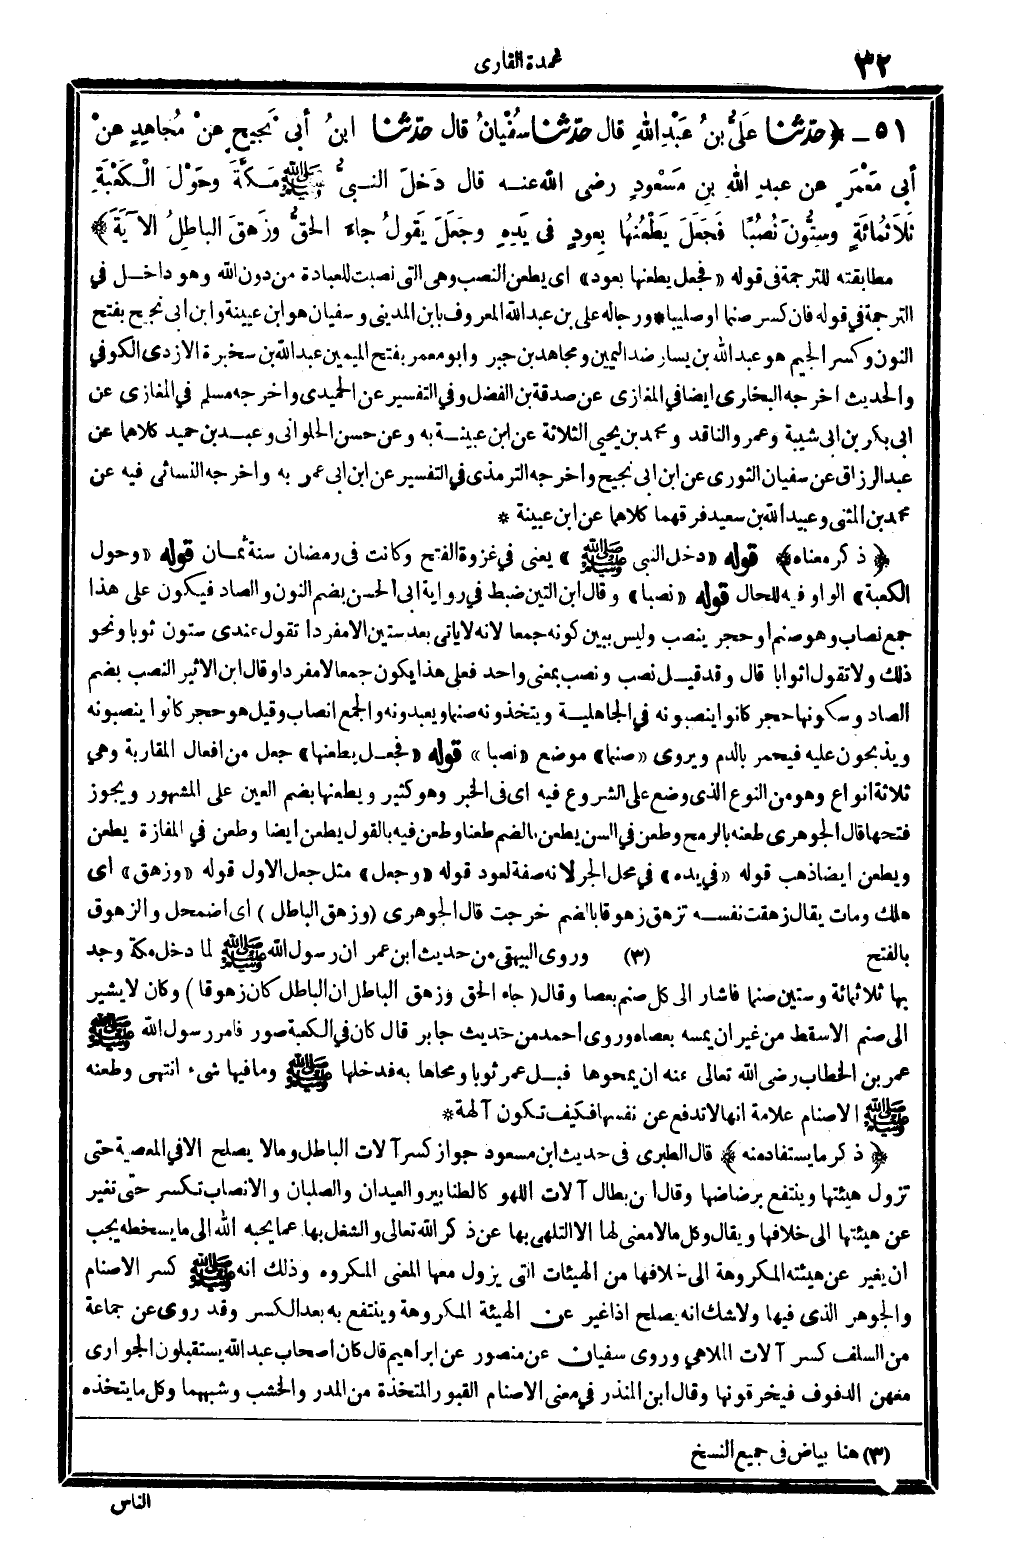 ٣٢
عمدة القارى
٥١ - ﴿ حَدَّثَنَا عَلِيُّ بنُ عَبْدِ اللهِ قال حَدَّثَنَا سُفْيانُ قال حَدَّثَنَا ابنُ أبي نَجِيحٍ عنْ مُجاهِدٍ عنْ
أبي مَعْمَرٍ عن عبدِ اللهِ بنِ مَسْعُودٍ رضى الله عنـه قال دَخلَ النـبيُّ ﷺ مَـكَّةَ وحَوْلَ الْـكَعْبَةِ
ثَلاَثُمائَةٍ وستُّونَ نُصُبًا فَجَعَلَ يَطْعُنُها بِعودٍ فى يَدِهِ وجَعَلَ يَقولُ جاءَ الحقُّ وزَهَقَ الباطلُ الآيَةَ ﴾
مطابقته للترجمة فى قوله «فجعل يطعنها بعود» اى يطعن النصب وهى التى نصبت للعبادة من دون الله وهو داخـل في
الترجمة في قوله فان كسر صنما او صليبا * ورجاله على بن عبد الله المعروف بابن المدينى وسفيان هو ابن عيينة وابن ابى نجيح بفتح
النون وكسر الجيم هو عبد الله بن يسار ضد اليمين ومجاهد بن جبر وابو معمر بفتح الميمين عبد الله بن سخبرة الازدى الكوفي
والحديث اخرجه البخارى ايضا في المغازى عن صدقة بن الفضل وفي التفسير عن الحميدى واخرجه مسلم في المغازى عن
ابى بكر بن ابى شيبة وعمرو الناقد ومحمد بن يحيى الثلاثة عن ابن عيينـة به وعن حسن الحلوانى وعبـد بن حميد كلاهما عن
عبد الرزاق عن سفيان الثورى عن ابن ابى نجيح واخرجه الترمذى في التفسير عن ابن ابى عمر به واخرجه النسائى فيه عن
محمد بن المثنى وعبيد الله بن سعيد فرقهما كلاهما عن ابن عيينة *
﴿ ذكر معناه ﴾ قوله «دخل النبى ﷺ» يعنى في غزوة الفتح وكانت فى رمضان سنة ثمـان قوله «وحول
الكعبة» الواو فيه للحال قوله «نصبا» وقال ابن التين ضبط في رواية ابى الحسن بضم النون والصاد فيكون على هذا
جمع نصاب وهو صنم او حجر ينصب وليس ببين كونه جمعا لانه لا ياتى بعد ستين الا مفردا تقول عندى ستون ثوبا ونحو
ذلك ولا تقول اثوابا قال وقد قيـل نصب ونصب بمعنى واحد فعلى هذا يكون جمعا لا مفردا وقال ابن الاثير النصب بضم
الصاد وسكونها حجر كانوا ينصبونه في الجاهليـة ويتخذونه صنما ويعبدونه والجمع انصاب وقيل هو حجر كانوا ينصبونه
ويذبحون عليه فيحمر بالدم ويروى «صنما» موضع «نصبا» قوله «فجعـل يطعنها» جعل من افعال المقاربة وهي
ثلاثة انواع وهو من النوع الذى وضع على الشروع فيه اى فى الخبر وهو كثير ويطعنها بضم العين على المشهور ويجوز
فتحها قال الجوهرى طعنه بالرمح وطعن في السن يطعن بالضم طعنا وطعن فيه بالقول يطعن ايضا وطعن في المفازة يطعن
ويطعن ايضا ذهب قوله «في يده» في محل الجر لانه صفة لعود قوله «وجعل» مثل جعل الاول قوله «وزهق» اى
هلك ومات يقال زهقت نفســه تزهق زهوقا بالضم خرجت قال الجوهرى (وزهق الباطل) اى اضمحل والزهوق
بالفتح (٣) وروى البيهقى من حديث ابن عمر ان رسول الله ﷺ لما دخل مكة وجد
بها ثلاثمائة وستين صنما فاشار الى كل صنم بعصا وقال (جاء الحق وزهق الباطل ان الباطل كان زهوقا) وكان لا يشير
الى صنم الا سقط من غير ان يمسه بعصاه وروى احمد من حديث جابر قال كان في الكعبة صور فامر رسول الله ﷺ
عمر بن الخطاب رضى الله تعالى عنه ان يمحوها فبـل عمر ثوبا ومحاها به فدخلها ﷺ وما فيها شىء انتهى وطعنه
ﷺ الاصنام علامة انها لا تدفع عن نفسها فكيف تـكون آلهة *
﴿ ذكر ما يستفاد منه ﴾ قال الطبرى فى حديث ابن مسعود جواز كسر آلات الباطل وما لا يصلح الا في المعصية حتى
تزول هيئتها وينتفع برضاضها وقال ابن بطال آلات اللهو كالطنابير والعيدان والصلبان والانصاب تـكسر حتى تغير
عن هيئتها الى خلافها ويقال وكل ما لا معنى لها الا التلهى بها عن ذكر الله تعالى والشغل بها عما يحبه الله الى ما يسخطه يجب
ان يغير عن هيئته المكروهة الى خلافها من الهيئات التى يزول معها المعنى المكروه وذلك انه ﷺ كسر الاصنام
والجوهر الذى فيها ولا شك انه يصلح اذا غير عن الهيئة المكروهة وينتفع به بعد الكسر وقد روى عن جماعة
من السلف كسر آلات الملاهي وروى سفيان عن منصور عن ابراهيم قال كان اصحاب عبد الله يستقبلون الجوارى
معهن الدفوف فيخرقونها وقال ابن المنذر في معنى الاصنام القبور المتخذة من المدر والخشب وشبههما وكل ما يتخذه
(٣) هنا بياض فى جميع النسخ
الناس